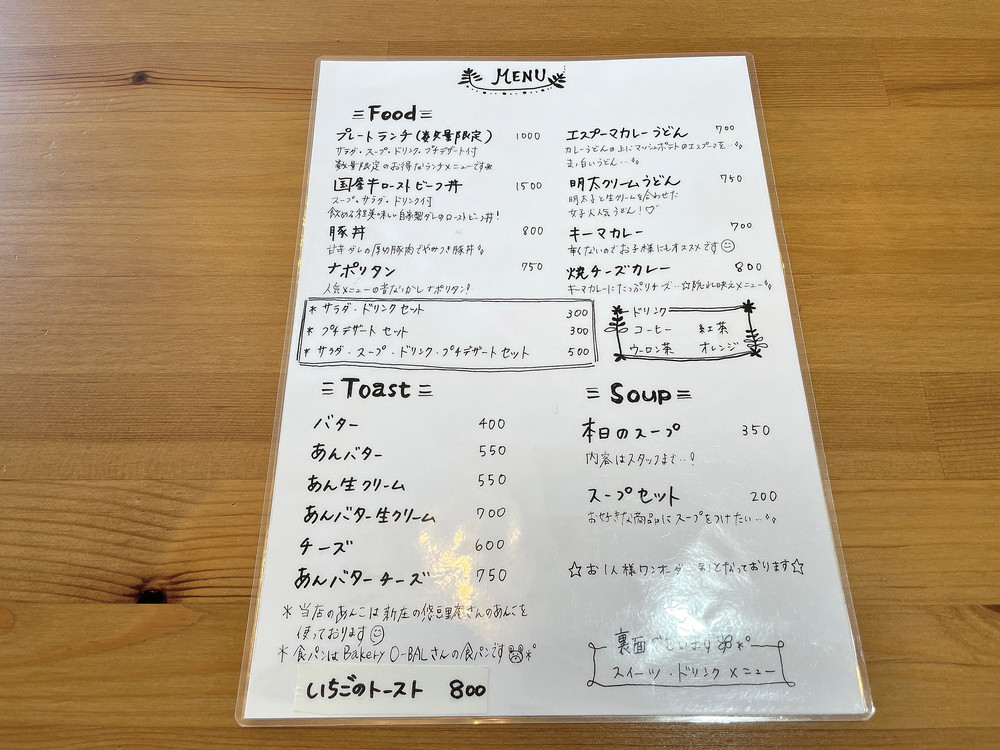 MENU
Food
プレートランチ(数量限定) 1000
サラダ・スープ・ドリンク・プチデザート付
数量限定のお得なランチメニューです
国産牛ローストビーフ丼 1500
スープ・サラダ・ドリンク付
飲める程美味しい自家製ダレのローストビーフ丼!
豚丼 800
甘辛ダレの厚切豚肉でやみつき豚丼
ナポリタン 750
人気メニューの昔なつかしナポリタン!
エスプーマカレーうどん 700
カレーうどんの上にマッシュポテトのエスプーマを…
まっ白いうどん…
明太クリームうどん 750
明太子と生クリームを合わせた
女子大人気うどん!♡
キーマカレー 700
辛くないのでお子様にもオススメです
焼チーズカレー 800
キーマカレーにたっぷりチーズ…☆隠れ映えメニュー
*サラダ・ドリンクセット 300
*プチデザートセット 300
*サラダ・スープ・ドリンク・プチデザートセット 500
ドリンク
コーヒー 紅茶
ウーロン茶 オレンジ
Toast
バター 400
あんバター 550
あん生クリーム 550
あんバター生クリーム 700
チーズ 600
あんバターチーズ 750
*当店のあんこは新庄の悠豆里庵さんのあんこを
使っております
*食パンはBakery O-BALさんの食パンです
いちごのトースト 800
Soup
本日のスープ 350
内容はスタッフまで…!
スープセット 200
お好きな商品にスープをつけたい…
☆お1人様ワンオーダー となっております☆
裏面
スイーツ・ドリンクメニュー